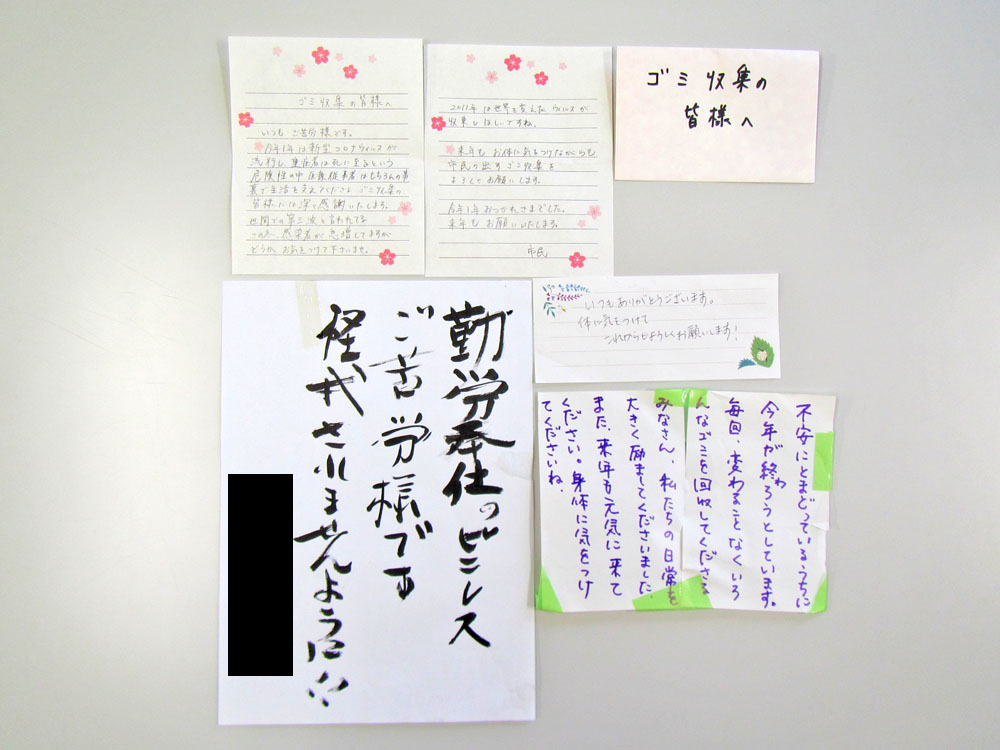 ゴミ収集の皆様へ
いつもご苦労様です。
今年1年は新型コロナウィルスが
流行し、重症者は死に至るという
危険性の中 医療従事者はもちろんの事
裏で生活を支えてくださる ゴミ収集の
皆様には深く感謝いたします。
世間での第三波と言われてる
この冬、感染者が急増してますが
どうか、お気をつけて下さいませ。
は世界を変えたウィルスが
収束してほしいですね。
来年もお体に気をつけながらも
市民が出すゴミ収集を
よろしくお願いします。
今年1年おつかれさまでした。
来年もお願いいたします。
市民
ゴミ収集の
皆様へ
いつもありがとうございます。
体に気をつけて
これからもよろしくお願いします!
勤労奉仕の
ご苦労様です
されませんように!!
不安にとまどっているうちに
今年が終わろうとしています。
毎回、変わることなくいろ
んなゴミを回収してくださる
みなさん、私たちの日常を
大きく励ましてくださいました。
また、来年も元気に来て
ください。身体に気をつけ
てくださいね。